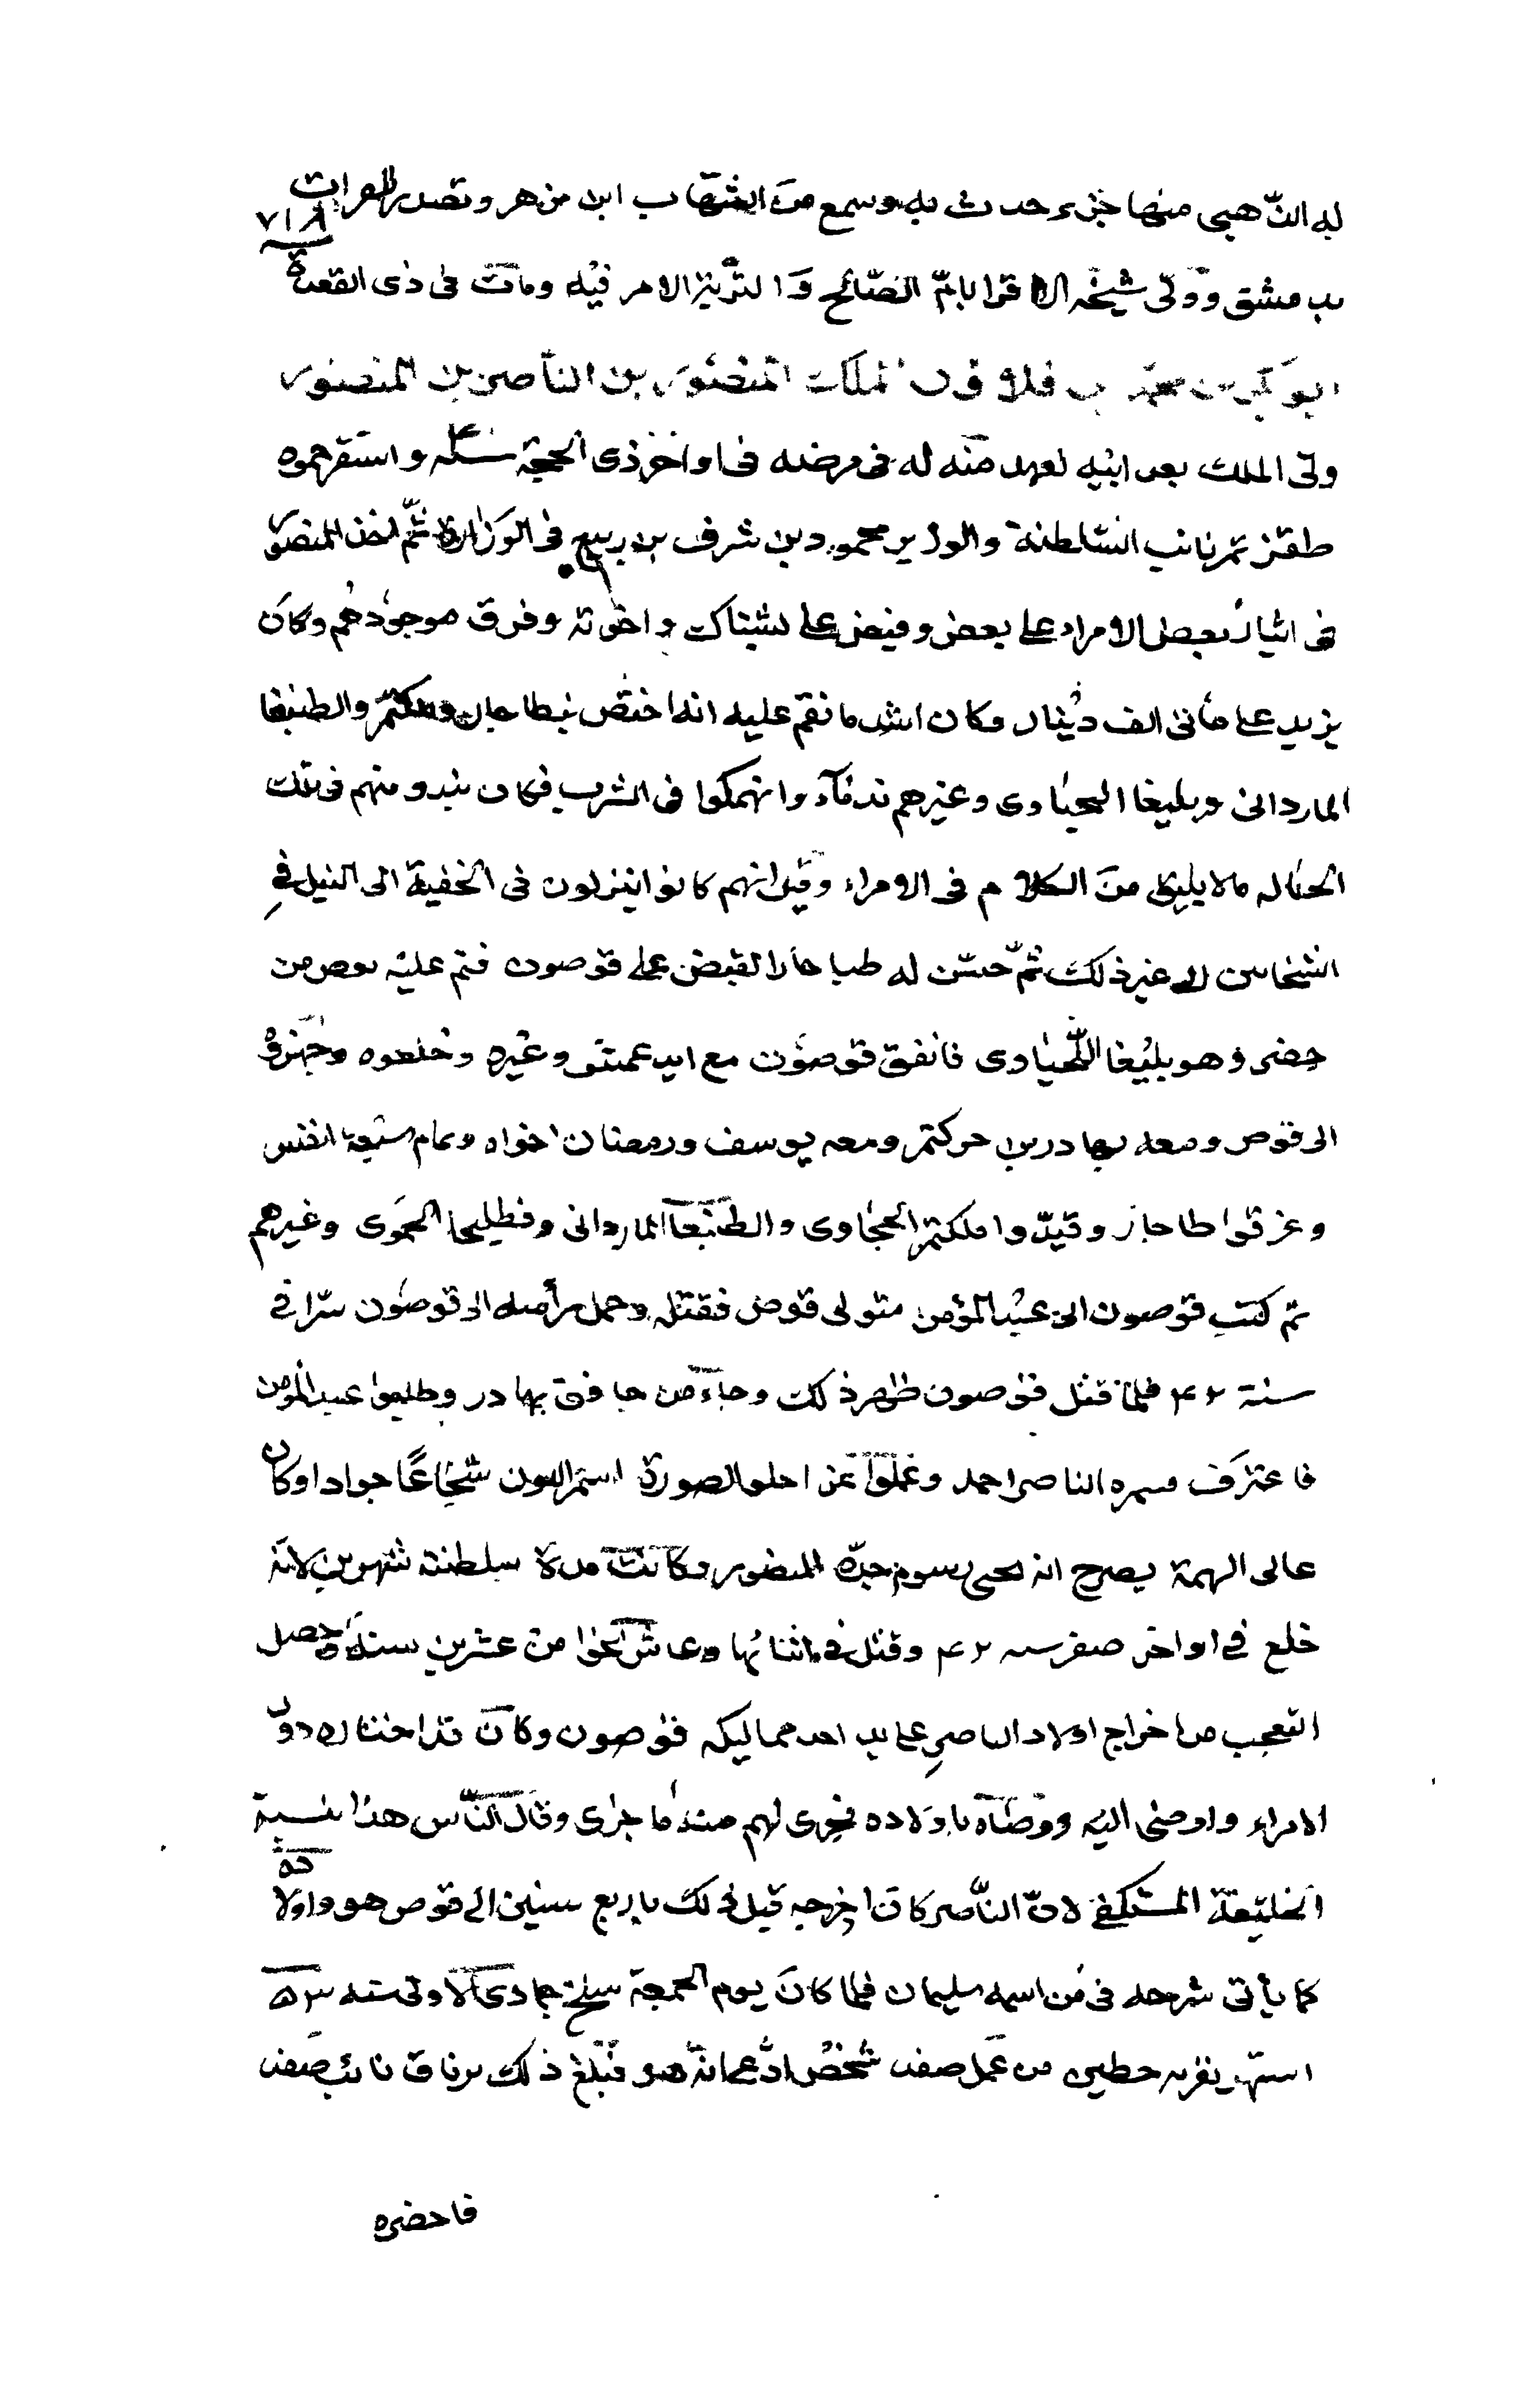 له الذّهبى منها جزء وحدث به وسمع من الشهاب ابن مزهر وتصدر للقرات
٧١٨
بدمشق وولّى شيخه الاقرا بامّ الصّالح والتربة الامر فيه ومات فى ذى القعدة
ابو بكر بن محمد بن قلاوون الملك المنصور بن الناصر بن المنصور
ولى الملك بعد ابيه لعهد منه له فى مرضه فى اواخر ذى الحجة سنة واستقر حموه
طقز تمر نائب السّلطنة والوزير محمود بن شرف بن ربيع فى الوزارة ثمّ اخذ المنصور
فى ايثار بعض الامراء على بعض وقبض على بشتاك واخوته وفرق موجودهم وكان
يزيد على مأتى الف دينار وكان اشد ما نقم عليه انه اختص بطاجار وملكتمر والطنبغا
الماردانى ويلبغا اليحياوى وغيرهم ندمآء وانهمكوا فى الشرب فكان يبدو منهم فى تلك
الحاله مالا يليق من الكلام فى الامراء وقيل انهم كانوا ينزلون فى الخفية الى النيل فى
الشخاتير الى غير ذلك ثمّ حسّن له طاجار القبض على قوصون فنم عليه بعض من
حضر وهو يلبغا اليحياوى فاتفق قوصون مع ايدغمش وغيره وخلعوه وجهزوه
الى قوص ومعه بهادر بن جركتمر ومعه يوسف ورمضان اخواه وتمام سبعة انفس
وغرقوا طاجار وقيّدوا ملكتمر الحجازى والطنبغا الماردانى وقطليجا الحموى وغيرهم
ثم كتب قوصون الى عبد المؤمن متولى قوص فقتله وحمل رأسه الى قوصون سرّا فى
سنة ٤٢ فلمّا قتل قوصون ظهر ذلك وجاء من حاقق بهادر وطلبوا عبد المؤمن
فاعترف وسمره الناصر احمد وغلوا عز احلو الصورة اسمر اللون شجاعًا جوادا وكان
عالى الهمة يصرح انه يحيى رسوم جدّه المنصور وكانت مدة سلطنته شهرين لانه
خلع فى اواخر صفر سنه ٤٢ وقتل فى اثنائها وعاش نحوا من عشرين سنة وحصل
التعجب من اخراج اولاد الناصر على يد احد مماليكه قوصون وكان قد اختاره دون
الامراء واوصى اليه ووصّاه باولاده فجرى لهم منه ما جرى وقال النّاس هذا بسبب
الخليفة المستكفى لانّ النّاصر كان اخرجه قبل ذلك باربع سنين الى قوص هو واولاده
كما يأتى شرحه فى من اسمه سليمان فلما كان يوم الجمعة سلخ جمادى الاولى سنه ٥٣
اشتهر بقرية حطين من عمل صفد شخص ادّعى انّه هو فبلغ ذلك برناق نائب صفد
فاحضره